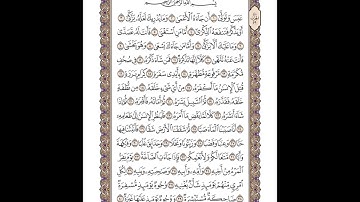 بِسْمِ اللَّهِ الرَّحْمَٰنِ الرَّحِيمِ
عَبَسَ وَتَوَلَّىٰ ١ أَن جَاءَهُ الْأَعْمَىٰ ٢ وَمَا يُدْرِيكَ لَعَلَّهُ يَزَّكَّىٰ ٣
أَوْ يَذَّكَّرُ فَتَنفَعَهُ الذِّكْرَىٰ ٤ أَمَّا مَنِ اسْتَغْنَىٰ ٥ فَأَنتَ لَهُ تَصَدَّىٰ ٦
وَمَا عَلَيْكَ أَلَّا يَزَّكَّىٰ ٧ وَأَمَّا مَن جَاءَكَ يَسْعَىٰ ٨ وَهُوَ يَخْشَىٰ ٩
فَأَنتَ عَنْهُ تَلَهَّىٰ ١٠ كَلَّا إِنَّهَا تَذْكِرَةٌ ١١ فَمَن شَاءَ ذَكَرَهُ ١٢ فِي صُحُفٍ
مُّكَرَّمَةٍ ١٣ مَّرْفُوعَةٍ مُّطَهَّرَةٍ ١٤ بِأَيْدِي سَفَرَةٍ ١٥ كِرَامٍ بَرَرَةٍ ١٦
قُتِلَ الْإِنسَانُ مَا أَكْفَرَهُ ١٧ مِنْ أَيِّ شَيْءٍ خَلَقَهُ ١٨ مِن نُّطْفَةٍ
خَلَقَهُ فَقَدَّرَهُ ١٩ ثُمَّ السَّبِيلَ يَسَّرَهُ ٢٠ ثُمَّ أَمَاتَهُ فَأَقْبَرَهُ ٢١ ثُمَّ إِذَا
شَاءَ أَنشَرَهُ ٢٢ كَلَّا لَمَّا يَقْضِ مَا أَمَرَهُ ٢٣ فَلْيَنظُرِ الْإِنسَانُ إِلَىٰ طَعَامِهِ ٢٤
أَنَّا صَبَبْنَا الْمَاءَ صَبًّا ٢٥ ثُمَّ شَقَقْنَا الْأَرْضَ شَقًّا ٢٦ فَأَنبَتْنَا فِيهَا
حَبًّا ٢٧ وَعِنَبًا وَقَضْبًا ٢٨ وَزَيْتُونًا وَنَخْلًا ٢٩ وَحَدَائِقَ غُلْبًا ٣٠
وَفَاكِهَةً وَأَبًّا ٣١ مَّتَاعًا لَّكُمْ وَلِأَنْعَامِكُمْ ٣٢ فَإِذَا جَاءَتِ الصَّاخَّةُ ٣٣ يَوْمَ يَفِرُّ
الْمَرْءُ مِنْ أَخِيهِ ٣٤ وَأُمِّهِ وَأَبِيهِ ٣٥ وَصَاحِبَتِهِ وَبَنِيهِ ٣٦ لِكُلِّ
امْرِئٍ مِّنْهُمْ يَوْمَئِذٍ شَأْنٌ يُغْنِيهِ ٣٧ وُجُوهٌ يَوْمَئِذٍ مُّسْفِرَةٌ ٣٨
ضَاحِكَةٌ مُّسْتَبْشِرَةٌ ٣٩ وَوُجُوهٌ يَوْمَئِذٍ عَلَيْهَا غَبَرَةٌ ٤٠